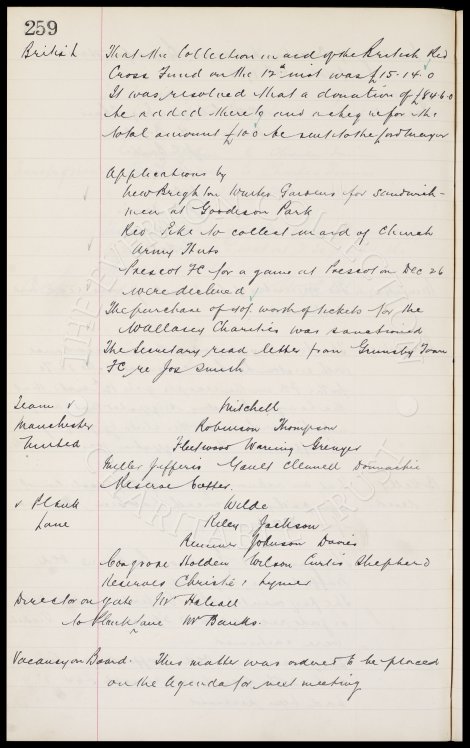 259
British That the Collection in aid of the British Red
Cross Fund on the 12th inst was £15.14.0
It was resolved that a donation of £84.6.0
be added thereto and a cheque for the
total amount £100 be sent to the Lord Mayor
Applications by
New Brighton Winter Gardens for sandwich-
men at Goodison Park
Rev Pike to collect in aid of Church
Army Huts
Prescot FC for a game at Prescot on Dec 26
were declined
The purchase of worth of tickets for the
Wallasey Charities was sanctioned
The Secretary read letter from Grimsby Town
FC re Jos Smith
Team v Mitchell
Manchester Robinson Thompson
United Fleetwood Wareing Grenyer
Miller Jefferis Gault Clennell Donnachie
Reserve
v Plank Wilde
Lane Riley Jackson
Rimmer Johnson Davis
Cosgrove Holden Wilson Curtis Shepherd
Reserves Christie, Kymer
Director on Gate Mr Halsall
to Plank Lane Mr Banks.
Vacancy on Board. This matter was ordered to be placed
on the Agenda for next meeting
THE EVERTON COLLECTION
CHARITABLE TRUST